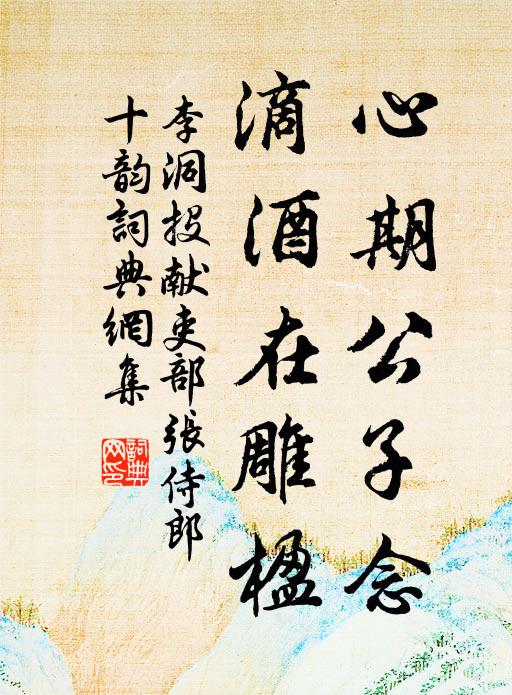 心期公子念
滴酒在雕楹
李洞投献吏部張侍郎
十韵詞典網集
詞典網印